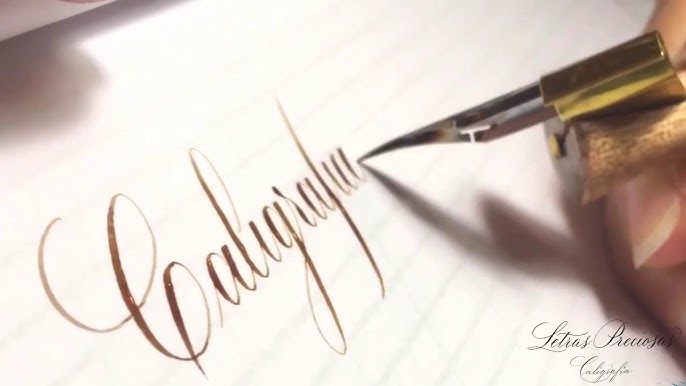 Caligrafia
Letras Preciosas
Caligrafía